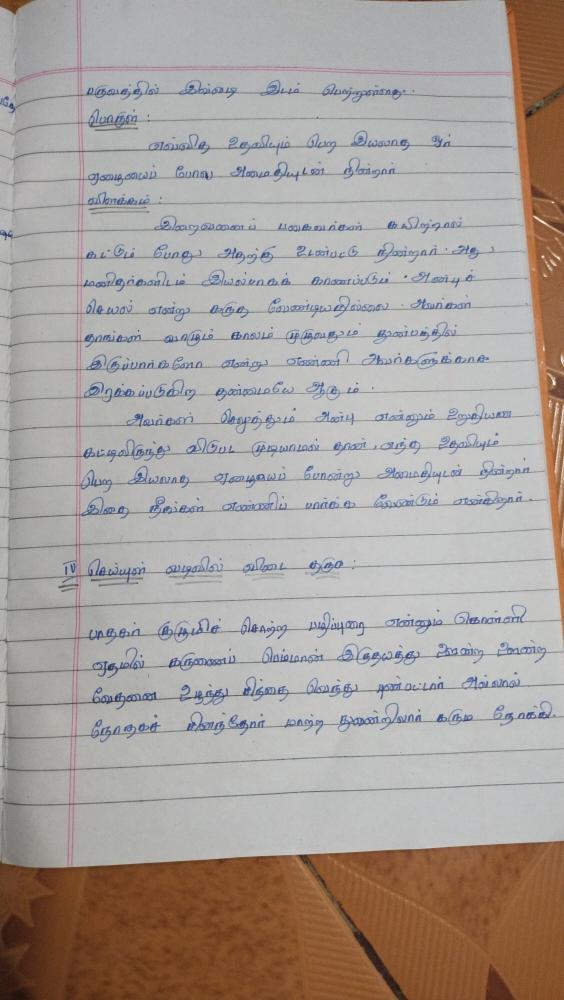 பருவத்தில் இவ்வடி இடம் பெற்றுள்ளது.
பொருள் :
எவ்வித உதவியும் பெற இயலாத ஓர்
ஏழையைப் போல அமைதியுடன் நின்றார்
விளக்கம் :
இறைவனைப் பகைவர்கள் கயிற்றால்
கட்டும் போது அதற்கு உடன்பட்டு நின்றார். அது
மனிதர்களிடம் இயல்பாகக் காணப்படும். அன்புச்
செயல் என்று கருத வேண்டியதில்லை. அவர்கள்
தாங்கள் வாழும் காலம் முழுவதும் துன்பத்தில்
இருப்பார்களோ என்று எண்ணி அவர்களுக்காக
இரக்கப்படுகிற தன்மையே ஆகும்.
அவர்கள் செலுத்தும் அன்பு என்னும் உறுதியான
கட்டிலிருந்து விடுபட முடியாமல் தான், எந்த உதவியும்
பெற இயலாத ஏழையைப் போன்று அமைதியுடன் நின்றார்
இதை நீங்கள் எண்ணிப் பார்க்க வேண்டும் என்கிறார்.
IV செய்யுள் வடிவில் விடை தருக :
பாதகர் குழுமிச் சொற்ற பழிப்புரை என்னும் கொள்ளி
ஏதமில் கருணைப் பெம்மான் இருதயத்து ஊன்ற ஊன்ற
வேதனை உழந்து சிந்தை வெந்து புண்பட்டார் அல்லால்
நோதகச் சினந்தோர் மாற்ற நுவன்றிலார் கரும நோக்கி.